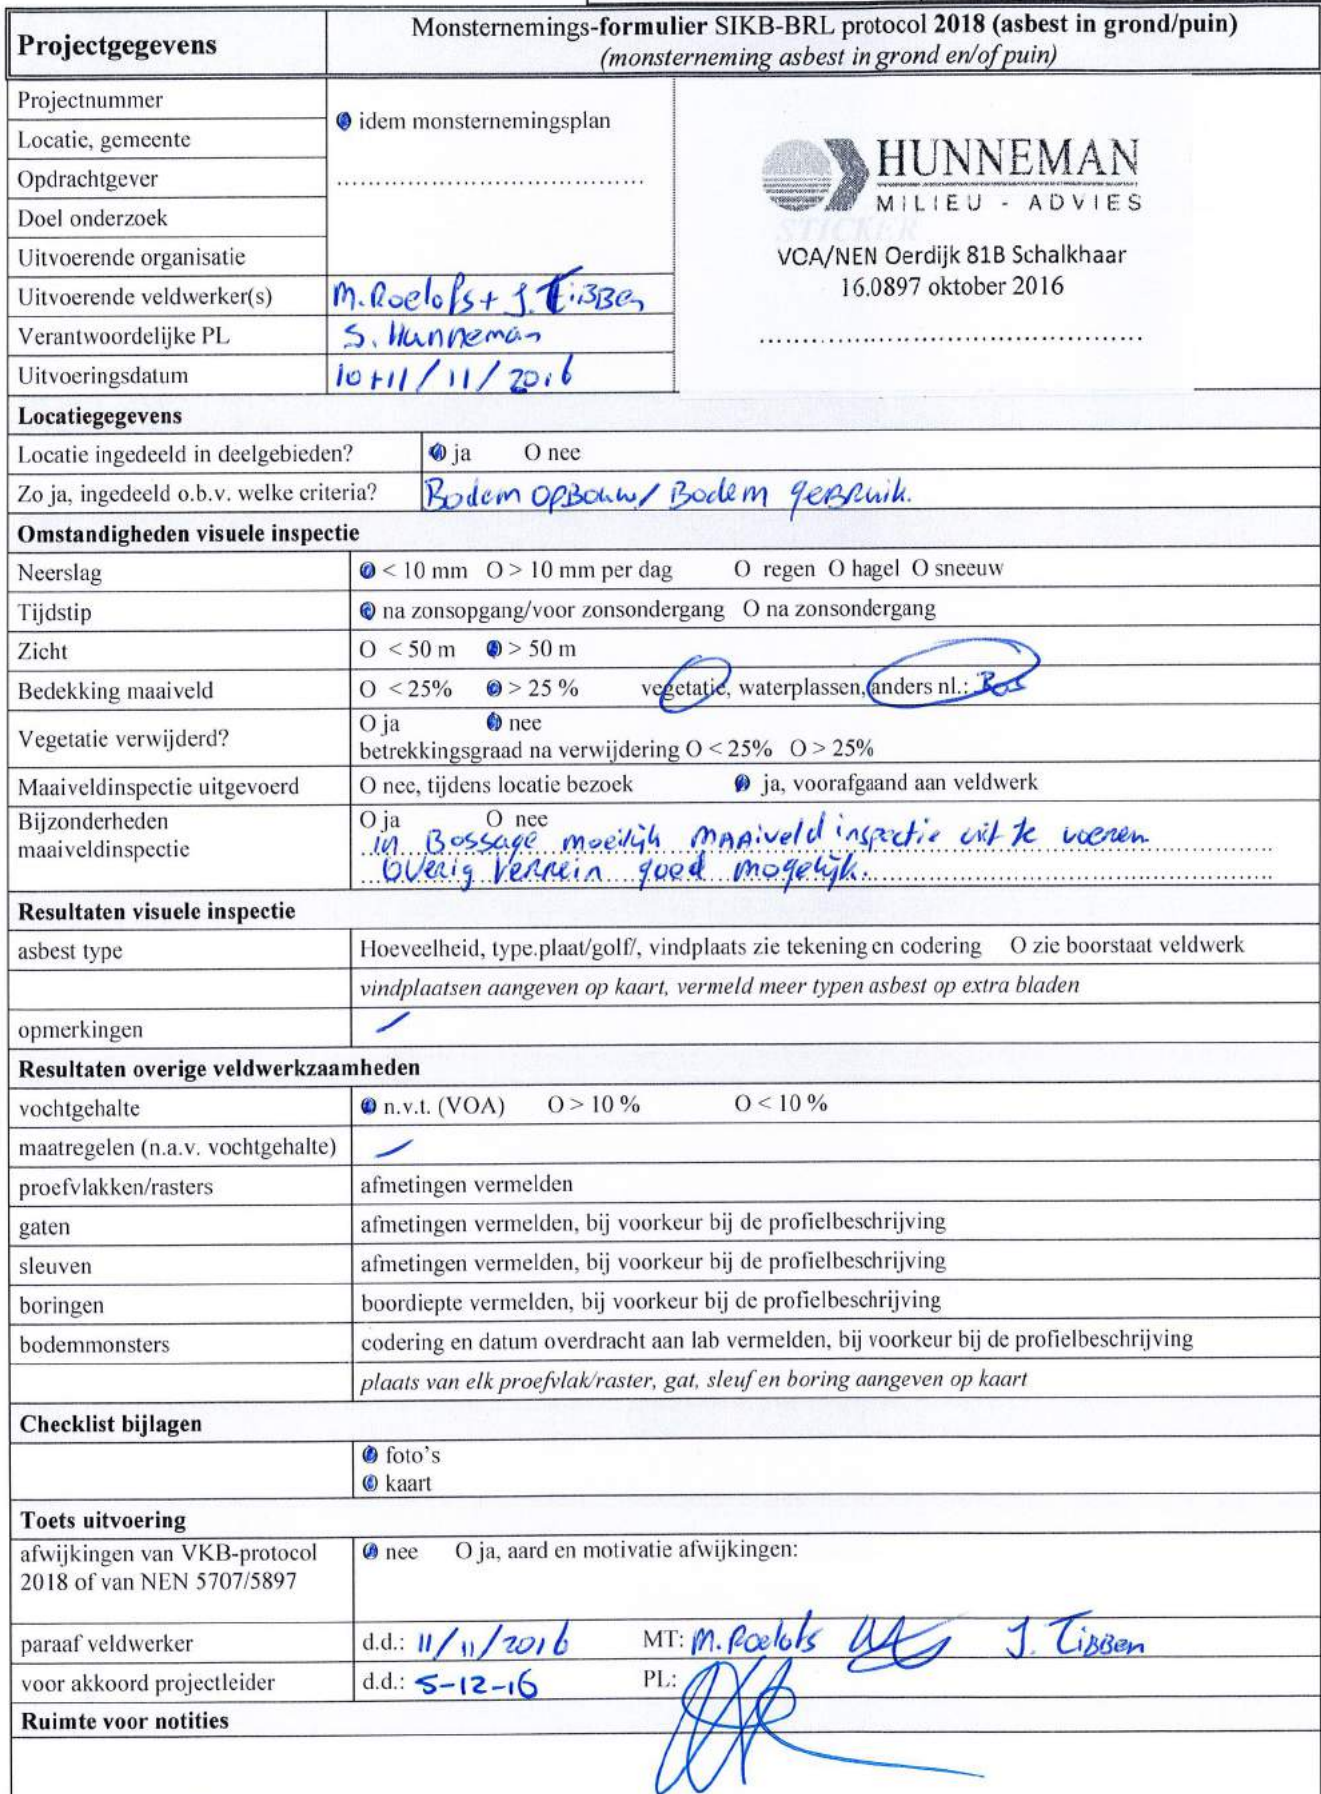 Projectgegevens
Monsternemings-formulier SIKB-BRL protocol 2018 (asbest in grond/puin)
(monsterneming asbest in grond en/of puin)
Projectnummer
idem monsternemingsplan
Locatie, gemeente
Opdrachtgever
Doel onderzoek
Uitvoerende organisatie
HUNNEMAN
MILIEU - ADVIES
STICKER
VOA/NEN Oerdijk 81B Schalkhaar
16.0897 oktober 2016
Uitvoerende veldwerker(s) M. Roelofs + J. Tibben
Verantwoordelijke PL S. Hunneman
Uitvoeringsdatum 10+11/11/2016
Locatiegegevens
Locatie ingedeeld in deelgebieden? ja O nee
Zo ja, ingedeeld o.b.v. welke criteria? Bodem opbouw/ Bodem gebruik.
Omstandigheden visuele inspectie
Neerslag < 10 mm O > 10 mm per dag O regen O hagel O sneeuw
Tijdstip na zonsopgang/voor zonsondergang O na zonsondergang
Zicht O < 50 m > 50 m
Bedekking maaiveld O < 25% > 25 % vegetatie, waterplassen, anders nl.: Bos
Vegetatie verwijderd? O ja nee
betrekkingsgraad na verwijdering O < 25% O > 25%
Maaiveldinspectie uitgevoerd O nee, tijdens locatie bezoek ja, voorafgaand aan veldwerk
Bijzonderheden maaiveldinspectie O ja O nee
in Bossage moeilijk maaiveld inspectie uit te voeren.
overig terrein goed mogelijk.
Resultaten visuele inspectie
asbest type Hoeveelheid, type.plaat/golf/, vindplaats zie tekening en codering O zie boorstaat veldwerk
vindplaatsen aangeven op kaart, vermeld meer typen asbest op extra bladen
opmerkingen
Resultaten overige veldwerkzaamheden
vochtgehalte n.v.t. (VOA) O > 10 % O < 10 %
maatregelen (n.a.v. vochtgehalte)
proefvlakken/rasters afmetingen vermelden
gaten afmetingen vermelden, bij voorkeur bij de profielbeschrijving
sleuven afmetingen vermelden, bij voorkeur bij de profielbeschrijving
boringen boordiepte vermelden, bij voorkeur bij de profielbeschrijving
bodemmonsters codering en datum overdracht aan lab vermelden, bij voorkeur bij de profielbeschrijving
plaats van elk proefvlak/raster, gat, sleuf en boring aangeven op kaart
Checklist bijlagen
foto's
kaart
Toets uitvoering
afwijkingen van VKB-protocol 2018 of van NEN 5707/5897 nee O ja, aard en motivatie afwijkingen:
paraaf veldwerker d.d.: 11/11/2016 MT: M. Roelofs J. Tibben
voor akkoord projectleider d.d.: 5-12-16 PL:
Ruimte voor notities